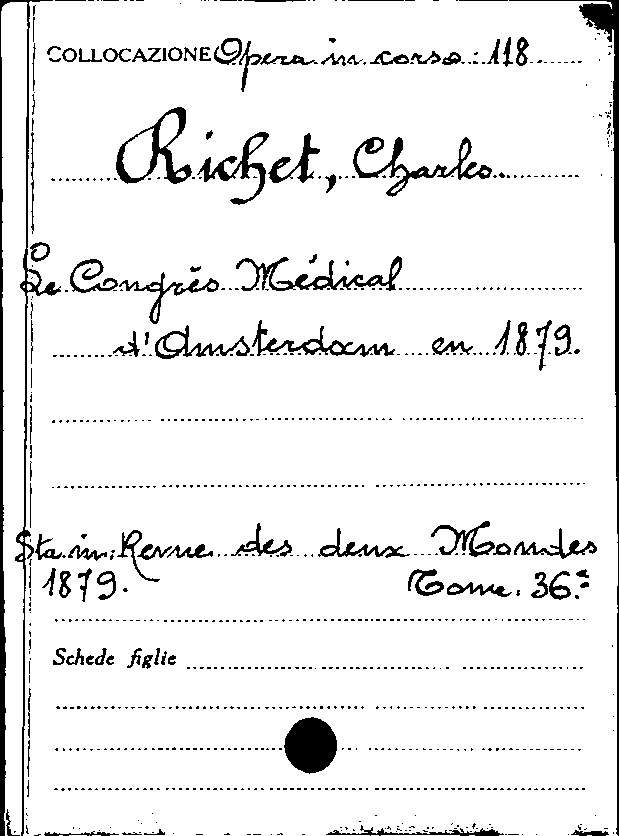 COLLOCAZIONE Opera in corso: 118.
Richet, Charles.
Le Congrès Médical
d'Amsterdam en 1879.
Sta in: Revue des deux Mondes
1879. Tome. 36.e
Schede figlie